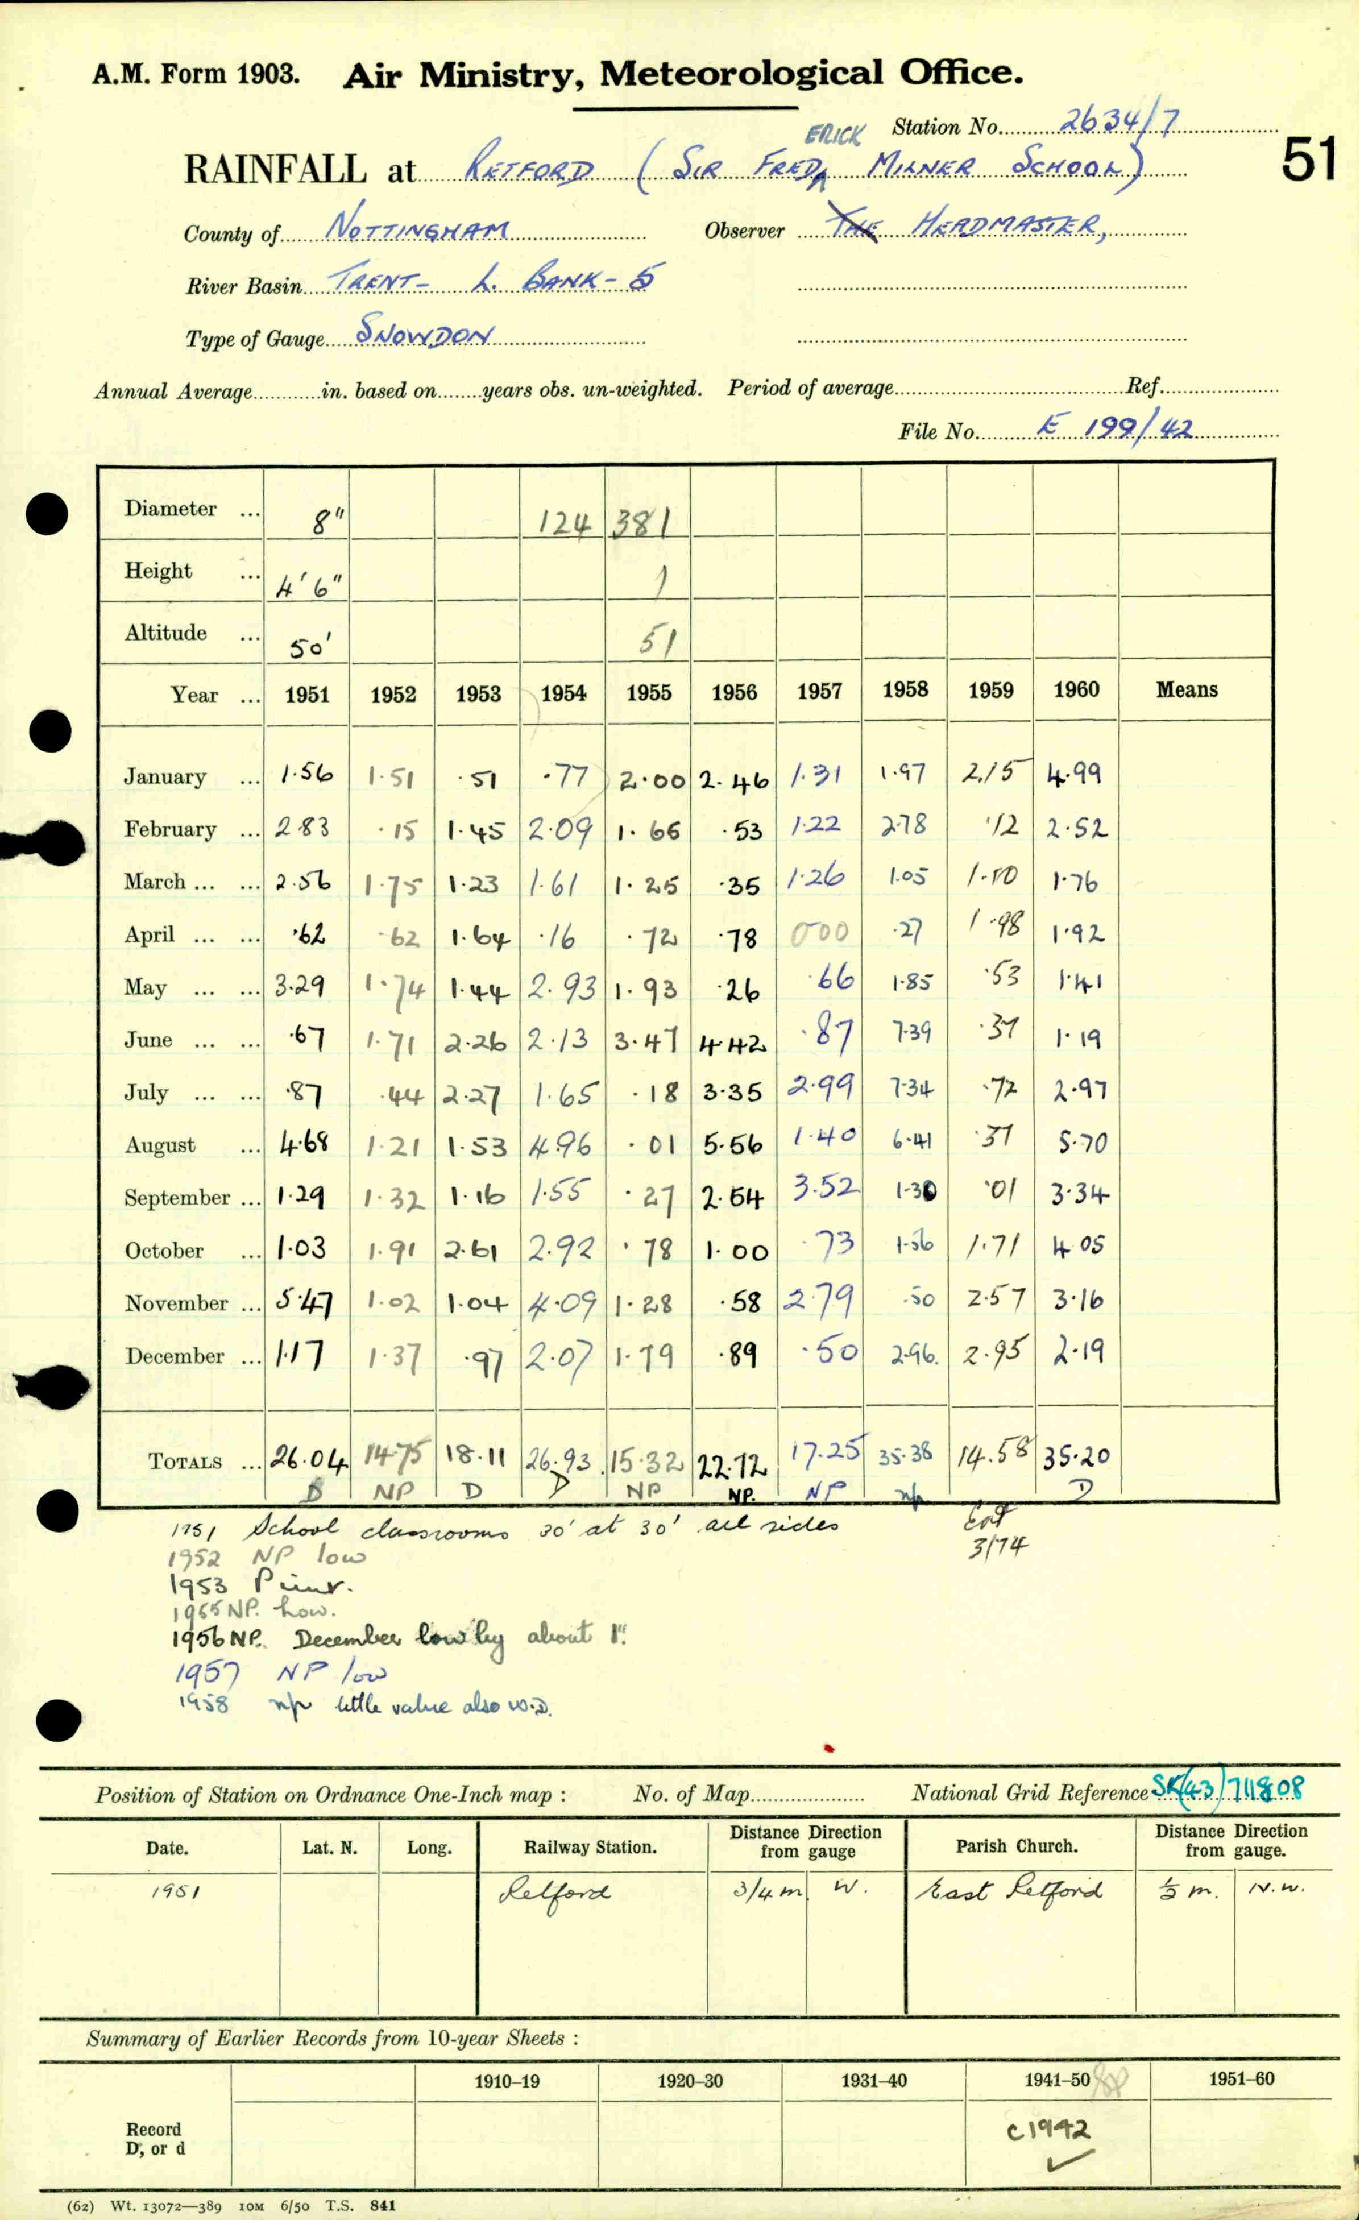 A.M. Form 1903. Air Ministry, Meteorological Office.
Station No. 2634/7
ERICK
RAINFALL at RETFORD (SIR FRED^ MILNER SCHOOL)
51
County of NOTTINGHAM Observer THE HEADMASTER,
River Basin TRENT - L. BANK - 5
Type of Gauge SNOWDON
Annual Average in. based on years obs. un-weighted. Period of average Ref.
File No. E 199/42
Diameter ... 8" 124 381
Height ... 4' 6" 1
Altitude ... 50' 51
Year ... 1951 1952 1953 1954 1955 1956 1957 1958 1959 1960 Means
January ... 1.56 1.51 .51 .77 2.00 2.46 1.31 1.97 2.15 4.99
February ... 2.83 .15 1.45 2.09 1.66 .53 1.22 2.78 .12 2.52
March ... ... 2.56 1.75 1.23 1.61 1.25 .35 1.26 1.05 1.10 1.76
April ... ... .62 .62 1.64 .16 .72 .78 000 .27 1.98 1.92
May ... ... 3.29 1.74 1.44 2.93 1.93 .26 .66 1.85 .53 1.41
June ... ... .67 1.71 2.26 2.13 3.47 4.42 .87 7.39 .37 1.19
July ... ... .87 .44 2.27 1.65 .18 3.35 2.99 7.34 .72 2.97
August ... 4.68 1.21 1.53 4.96 .01 5.56 1.40 6.41 .37 5.70
September ... 1.29 1.32 1.16 1.55 .27 2.54 3.52 1.30 .01 3.34
October ... 1.03 1.91 2.61 2.92 .78 1.00 .73 1.56 1.71 4.05
November ... 5.47 1.02 1.04 4.09 1.28 .58 2.79 .50 2.57 3.16
December ... 1.17 1.37 .97 2.07 1.79 .89 .50 2.96 2.95 2.19
TOTALS ... 26.04 14.75 18.11 26.93 15.32 22.72 17.25 35.38 14.58 35.20
D NP D D NP NP. NP np D
1951 School classrooms 30' at 30' all sides
3/74
1952 NP low
1953 
1955 NP. Low.
1956 NP. December low by about 1".
1957 NP low
1958 np little value also W.D.
Position of Station on Ordnance One-Inch map : No. of Map National Grid Reference SK(43)711808
Date. Lat. N. Long. Railway Station. Distance from gauge Direction Parish Church. Distance from gauge. Direction
1951 Retford 3/4 m W. East Retford ½ m. N.W.
Summary of Earlier Records from 10-year Sheets :
1910–19 1920–30 1931–40 1941–50 1951–60
Record D, or d c1942 ✓
(62) Wt. 13072—389 10M 6/50 T.S. 841